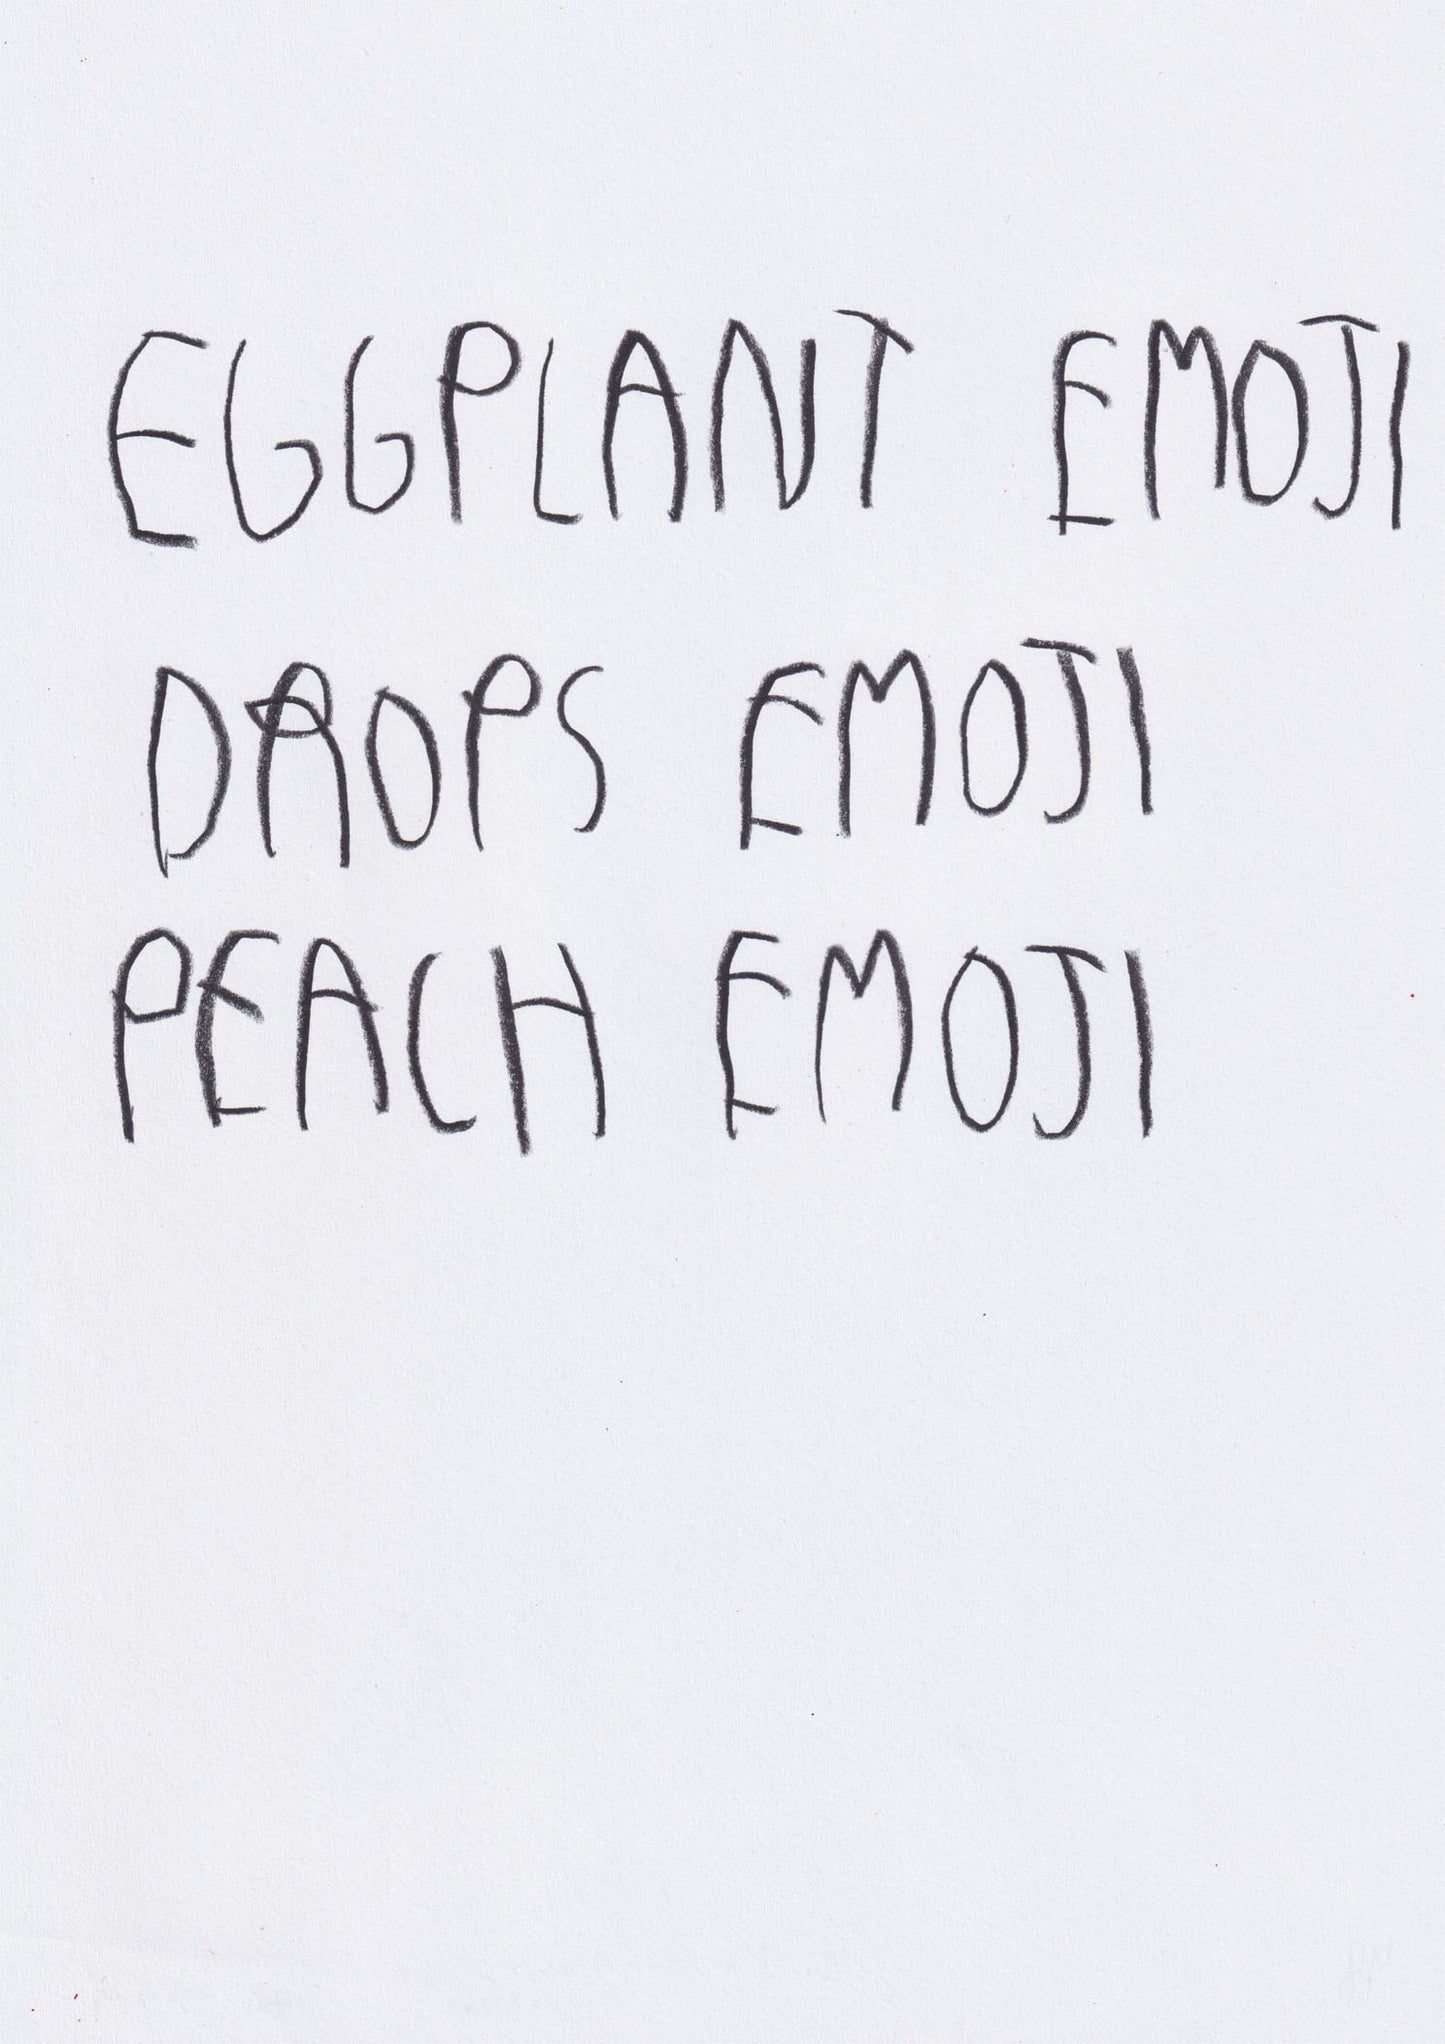 EGGPLANT EMOJI
DROPS EMOJI
PEACH EMOJI